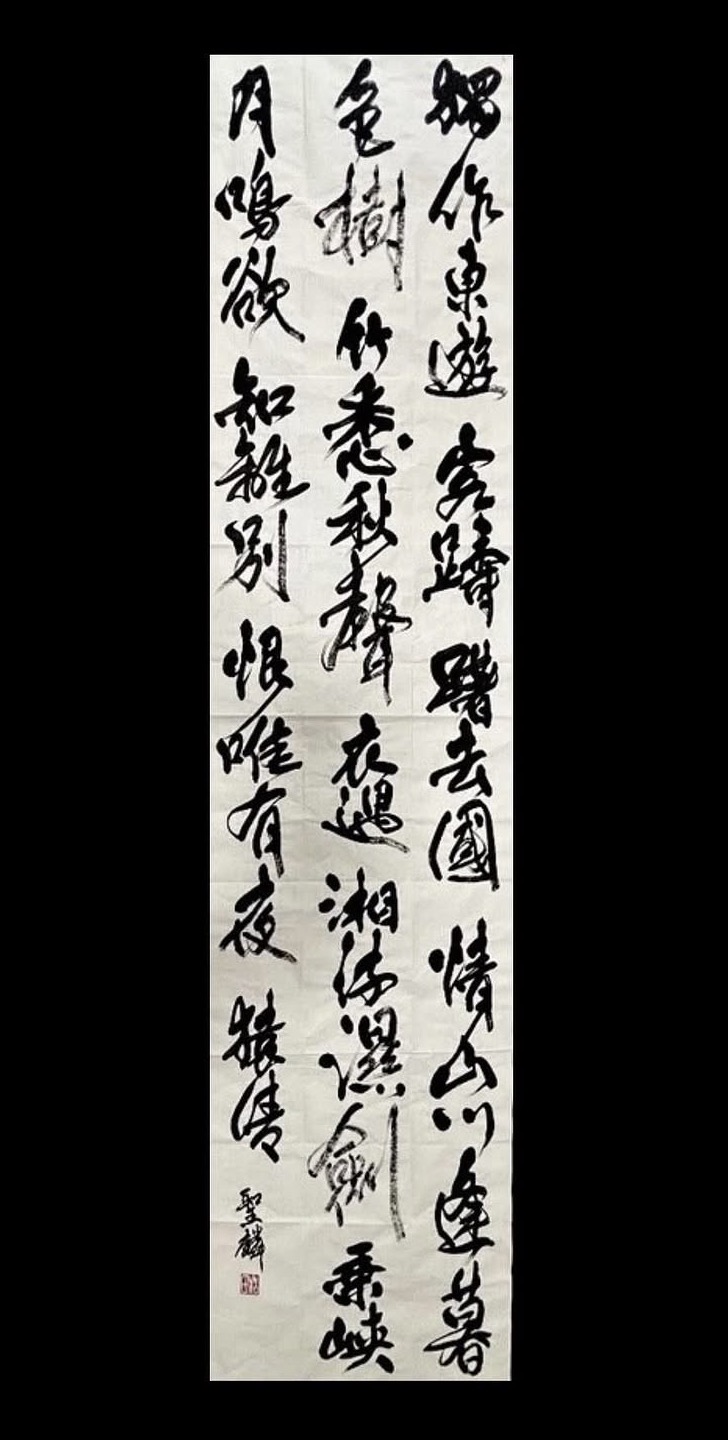 獨作東遊客躊躇去國情山川逢暮
色樹竹悉秋聲衣遇湘濕劍乘峽
月鳴欲知離別恨唯有夜猿清
聖麟